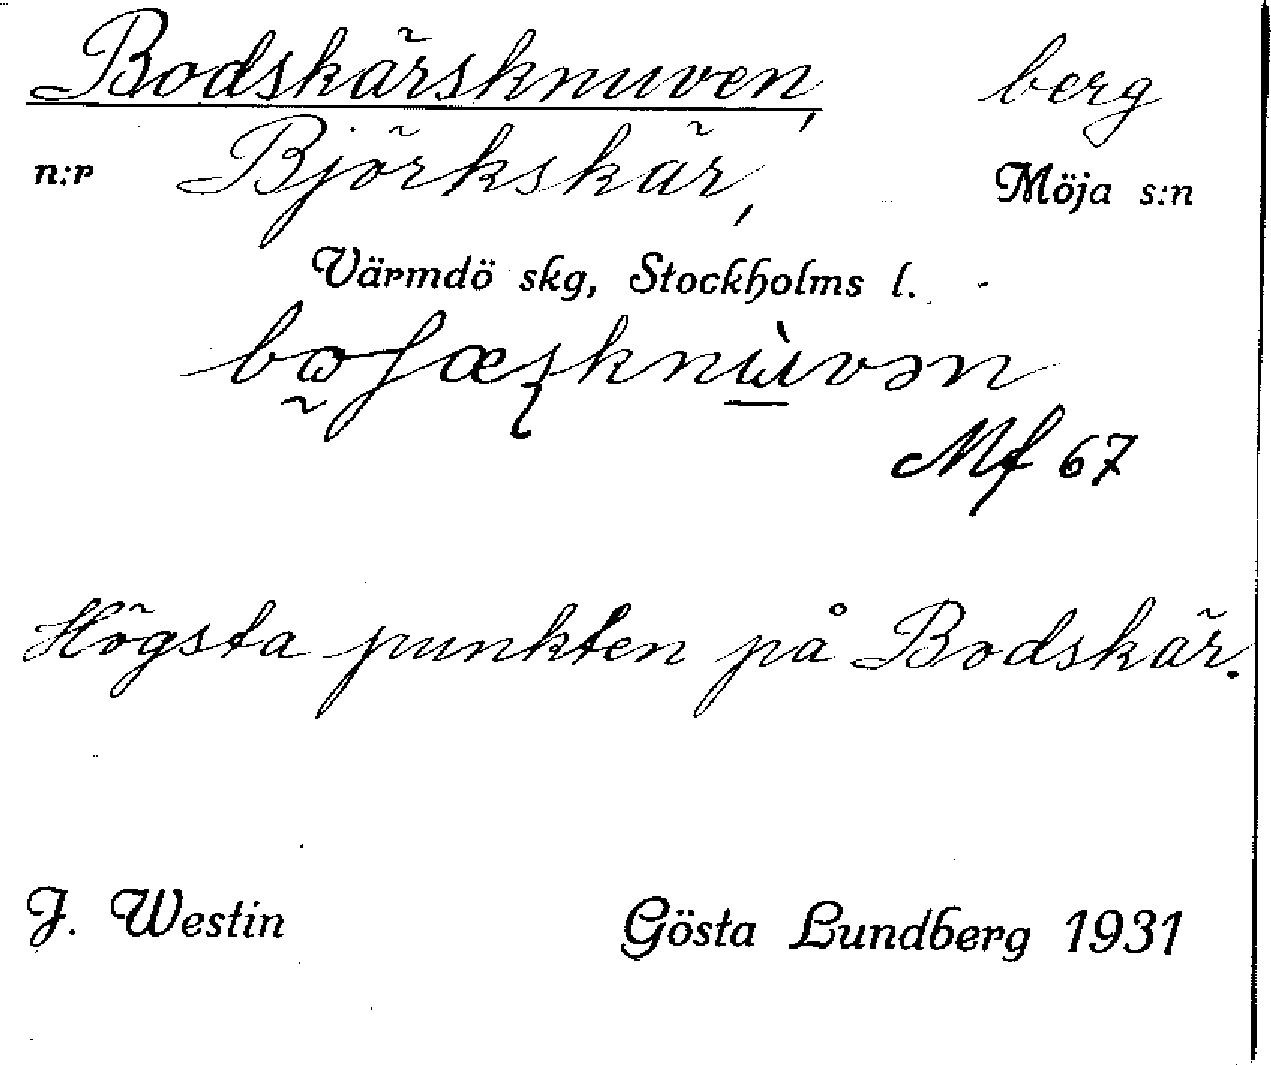 Bodskärsknuven, berg
n:r Björkskär, Möja s:n
Värmdö skg, Stockholms l.
Mf 67
Högsta punkten på Bodskär.
J. Westin Gösta Lundberg 1931